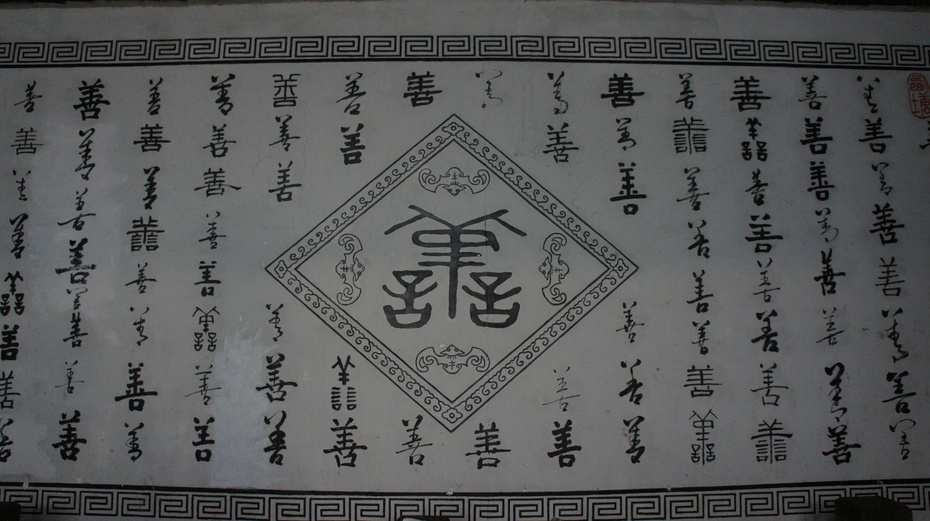 善善善善善善善善
善善善善善善善善
善善善善善善善善
善善善善善善善善
善善善善善善
善善善善
善善
善
善善
善善善善
善善善善善善
善善善善善善善善
善善善善善善善善
善善善善善善善
善善善善善善善善